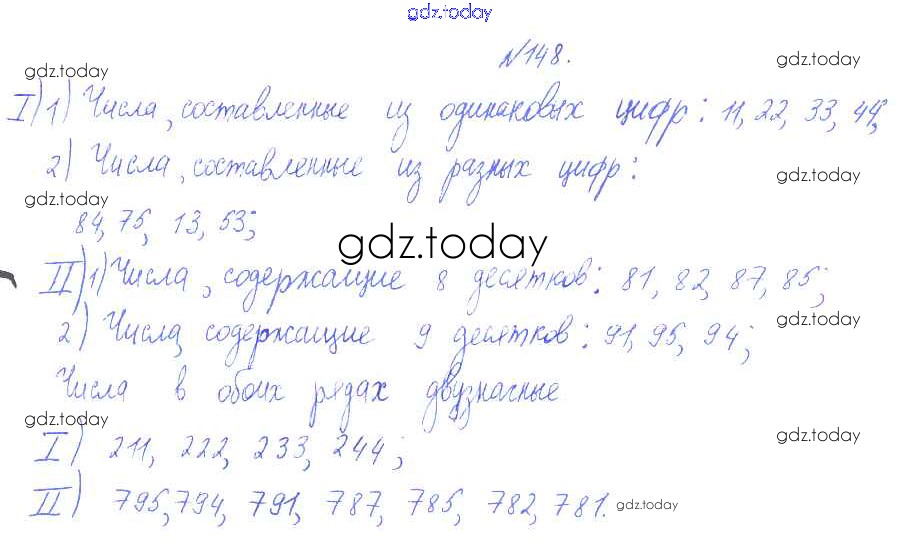 gdz.today
№148.
gdz.today gdz.today
I) 1) Числа, составленные из одинаковых цифр: 11, 22, 33, 44;
2) Числа, составленные из разных цифр:
gdz.today gdz.today
84, 75, 13, 53;
gdz.today
II) 1) Числа, содержащие 8 десятков: 81, 82, 87, 85;
gdz.today
2) Числа, содержащие 9 десятков: 91, 95, 94;
Числа в обоих рядах двузначные
gdz.today gdz.today
I) 211, 222, 233, 244;
II) 795, 794, 791, 787, 785, 782, 781.
gdz.today